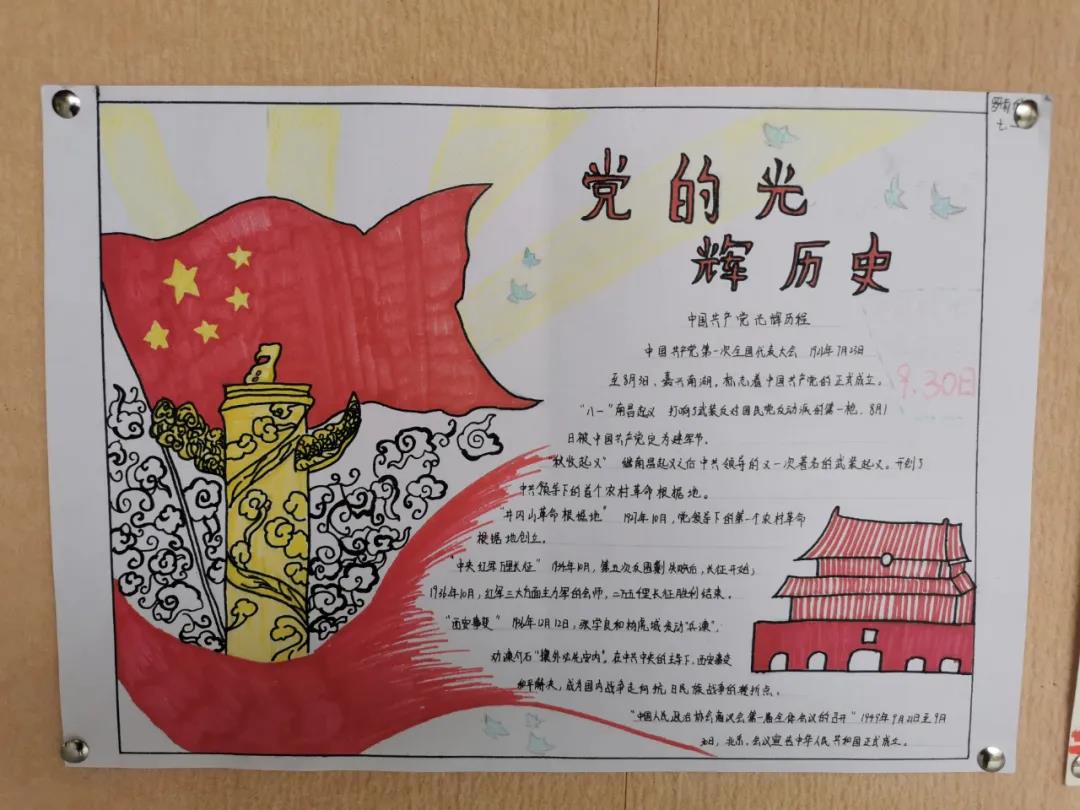 党的光
辉历史
中国共产党光辉历程
中国共产党第一次全国代表大会 1921年7月23日
至8月3日、嘉兴南湖。标志着中国共产党的正式成立。
9.30日
"八一"南昌起义 打响了武装反对国民党反动派的第一枪、8月1
日被中国共产党定为建军节。
"秋收起义" 继南昌起义之后中共领导的又一次著名的武装起义。开创了
中共领导下的首个农村革命根据地。
"井冈山革命根据地" 1927年10月,党领导下的第一个农村革命
根据地创立。
"中央红军长征" 1934年10月,第五次反围剿失败后,长征开始;
1936年10月,红军三大方面主力军的会师,二万五千里长征胜利结束。
"西安事变" 1936年12月12日,张学良和杨虎城发动"兵谏",
动谏介石"攘外必先安内"。在中共中央的主导下、西安事变
和平解决,成为国内战争走向抗日民族战争的转折点。
"中国人民政治协会商议会第一届全体会议的召开" 1949年9月21日至9月
30日,北京。会议宣告中华人民共和国正式成立。
七一